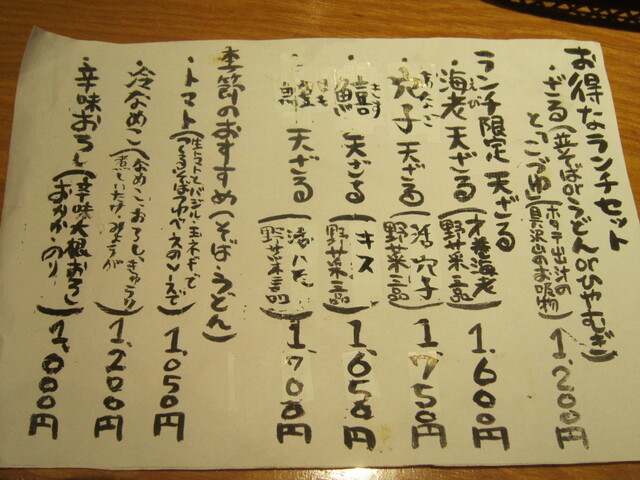 お得なランチセット
・ざる(並そばorうどんorひやむぎ)
とこづゆ(ホタテ出汁の具沢山のお吸物) 1,200円
ランチ限定 天ざる
・海老(えび)天ざる(才巻海老 野菜三品) 1,600円
・穴子(あなご)天ざる(活穴子 野菜三品) 1,750円
・鱚(きす)天ざる(キス 野菜三品) 1,650円
天ざる(野菜三品) 1,700円
季節のおすすめ(そば・うどん)
・トマト(生トマトとバジル・玉ネギで つるつゆベースのソースで) 1,050円
・冷なめこ(なめこ、おろし、きゅうり 煮しいたけ、みょうが) 1,200円
・辛味おろし(辛味大根おろし おかか・のり) 1,000円